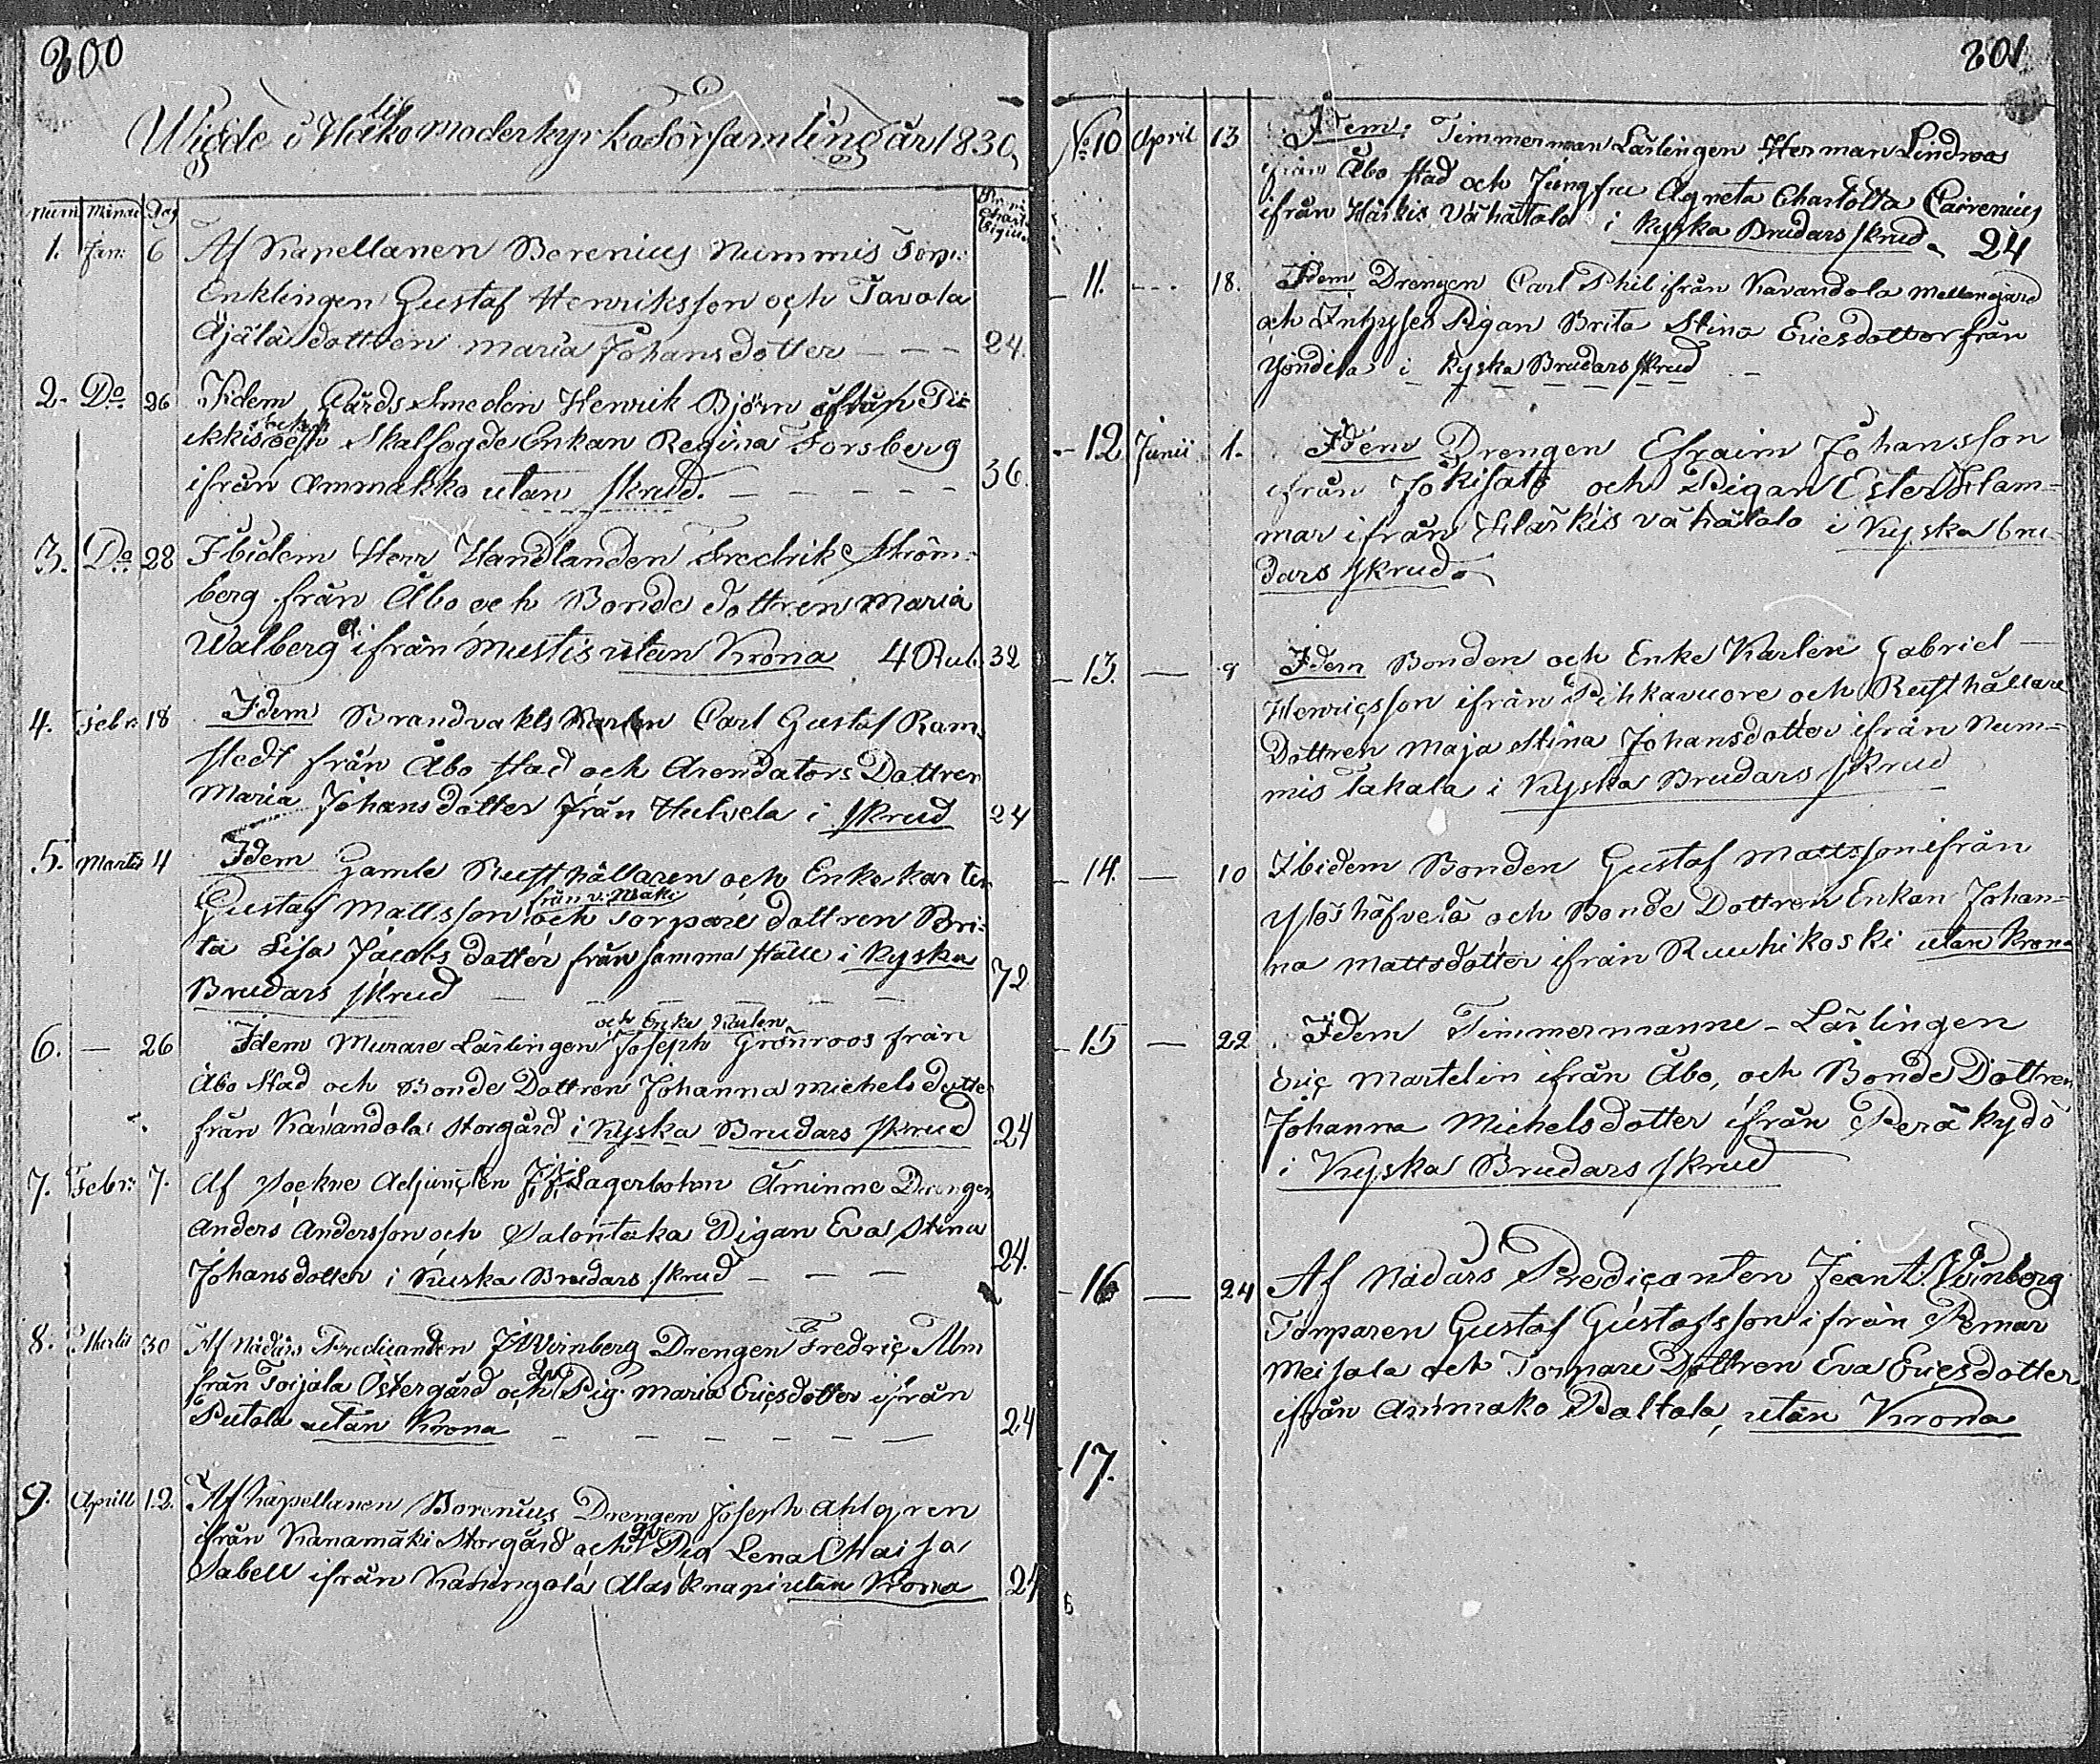 200
Wigde i Haliko Moderkyrkoförsamling år 1830,
Num Månad Dag
1. Jan: 6 Af Kapellanen Borenius Nummis Torp:
Enklingen Gustaf Henriksson och Tavola
Äjälä dottren Maria Johansdotter — — — 24.
2. Do 26 Ibidem Gårds Smeden Henrik Björn ifrån Pii
kkis Skalfogde Enkan Regina Forsberg
ifrån Ammakko utan skrud. — — — — — 36.
3. Do 28 Ibidem Herr Handlanden Fredrik Ström-
berg från Åbo och Bonde dottren Maria
Walberg ifrån Mustis utan Krona 4 Rub. 32
4. Febr: 18 Idem Brandvakts Karlen Carl Gustaf Ram-
stedt från Åbo stad och Arendators Dottren
Maria Johansdotter från Hulvela i skrud 24
5. Martii 4 Idem Gamle Rusthållaren och Enke karlen
från v. Mäki
Gustaf Mattsson och Torpare dottren Bri-
ta Lisa Jacobsdotter från samma ställe i Kyska
Brudars skrud — — — — — — 72
och Enke Karlen
6. — 26 Idem Murare Lärlingen Joseph Grönroos från
Åbo Stad och Bonde Dottren Johanna Michelsdotter
från Kavandola Storgård i Kyska Brudars skrud 24
7. Febr: 7. Af Sockne Adjuncten Lagerbohm Åminne Drengen
Anders Andersson och Salontaka Pigan Eva Stina
Johansdotter i Kuska Brudars skrud — — — 24.
8. Martii 30 Af Nådårs Predicanden Winberg Drengen Fredric Alm
från Toijala Östergård och Pig. Maria Ericsdotter ifrån
Putola utan Krona — — — — — — 24
9. Aprill 12. Af Kapellanen Borenius Drengen Joseph Ahlgren
ifrån Kanamäki Storgård och Pig Lena Maija
Sabell ifrån Kaningola Alasknapi utan Krona 24
201
No. 10 April 13 Idem. Timmerman Lärlingen Herman Lindroos
ifrån Åbo stad och Jungfru Agneta Charlotta Cairenius
ifrån Härkis Vähätalo i Kyska Brudars skrud. 24
11. --- 18. Idem Drengen Carl Phil ifrån Kavandola Mellangård
och Inhyses Pigan Brita Stina Ericsdotter från
Yöndilä i Kyska Brudars skrud
12 Junii 1. Idem Drengen Efraim Johansson
ifrån Jokisato och Pigan Ester Flam-
mar ifrån Härkis Vähätalo i Kyska bru-
dars skrud.
13. — 9 Idem Bonden och Enke Karlen Gabriel
Henricsson ifrån Pihkavuore och Rusthållare
Dottren Maja Stina Johansdotter ifrån Num-
mis Takala i Kyska Brudars skrud
14. — 10 Ibidem Bonden Gustaf Mattsson ifrån
Ylöshäfvelä och Bonde Dottren Enkan Johan-
na Mattsdotter ifrån Ruuhikoski utan krona
15 — 22 Idem Timmermanne-Lärlingen
Eric Martelin ifrån Åbo, och Bonde Dottren
Johanna Michelsdotter ifrån Peräkydö
i Kyska Brudars skrud
16 — 24 Af Nådårs Predicanten Winberg
Torparen Gustaf Gustafsson ifrån Pemar
Meisala och Torpare Dottren Eva Ericsdotter
ifrån Ammako Paltala, utan Krona
17.